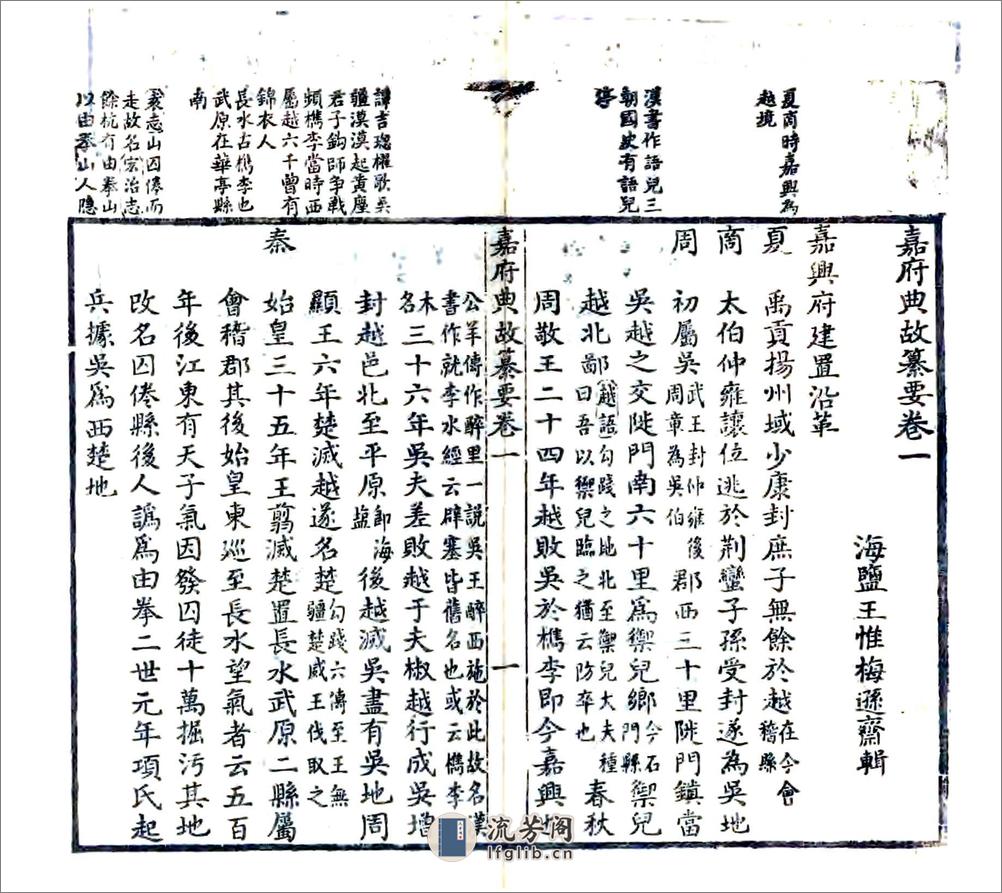 嘉府典故纂要卷一
海鹽王惟梅遜齋輯
嘉興府建置沿革
夏商時嘉興為
越境
夏　禹貢揚州域少康封庶子無餘於越在今會稽縣
商　太伯仲雍讓位逃於荆蠻子孫受封遂為吳地
周　初屬吳武王封仲雍後周章為吳伯郡西三十里陡門鎮當
吳越之交陡門南六十里為禦兒鄉今石門縣禦兒
漢書作語兒三
朝國史有語兒
越北鄙越語勾踐之地北至禦兒大夫種曰吾以禦兒臨之猶云防卒也春秋
周敬王二十四年越敗吳於檇李即今嘉興地
嘉府典故纂要卷一　一
公羊傳作醉里一說吳王醉西施於此故名漢書作就李水經云辟塞皆舊名也或云檇李
木名三十六年吳夫差敗越于夫椒越行成吳增
封越邑北至平原即海鹽後越滅吳盡有吳地周
顯王六年楚滅越遂名楚勾踐六傳至王無疆楚威王伐取之
譚吉璁櫂歌吳
疆漠漠起黃塵
君子鈎師争戰
頻檇李當時西
屬越六千曾有
錦衣人
秦　始皇三十五年王翦滅楚置長水武原二縣屬
長水古檇李也
武原在華亭縣
南
會稽郡其後始皇東巡至長水望氣者云五百
年後江東有天子氣因發囚徒十萬掘污其地
改名囚倦縣後人譌為由拳二世元年項氏起
袁志山囚倦而
走故名宏治志
餘杭有由拳山
以由拳山人隱
兵據吳為西楚地
流芳阁
lfglib.cn